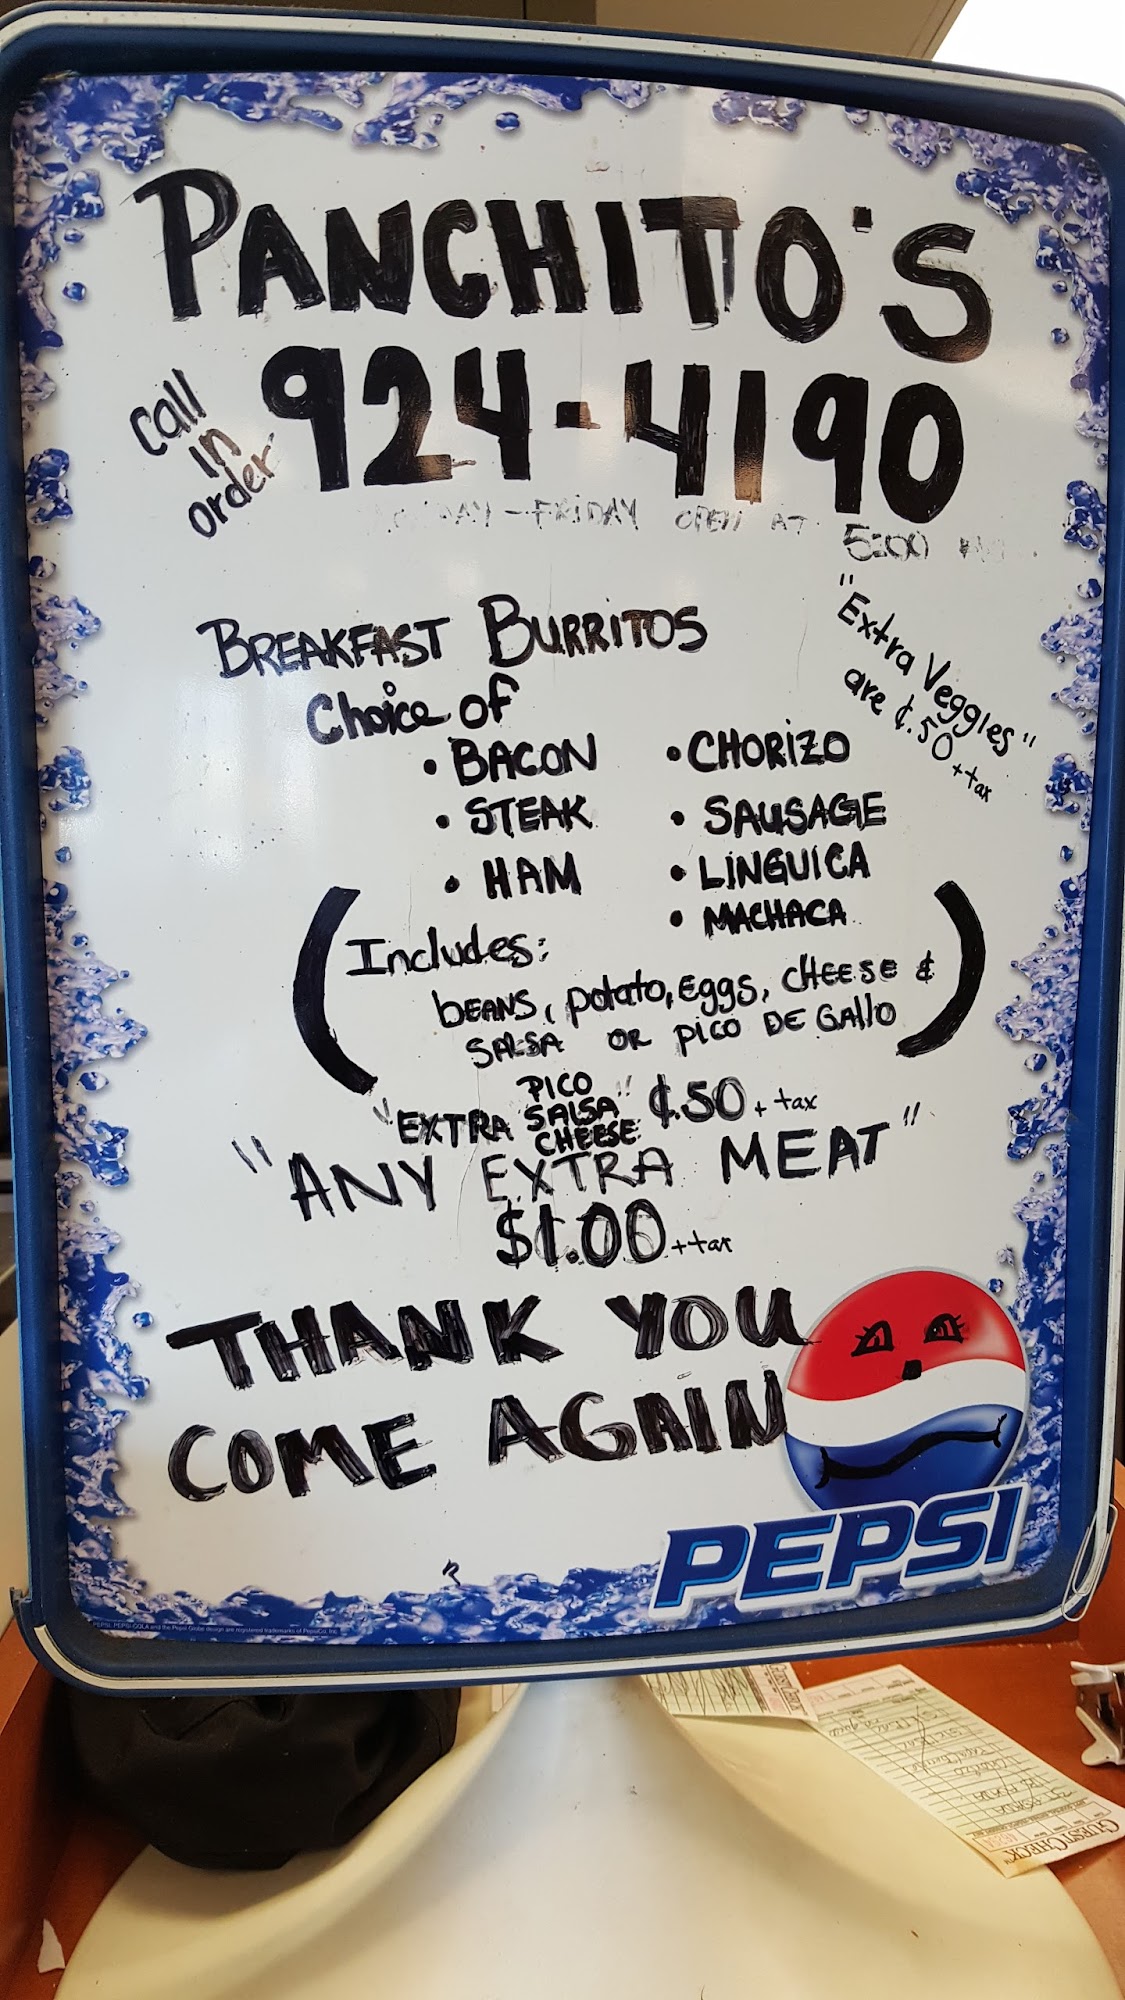 PANCHITO'S
Call
in
order
924-4190
-FRIDAY OPEN AT 5:00
BREAKFAST BURRITOS
"Extra Veggies"
are ¢.50 + tax
Choice of
• BACON • CHORIZO
• STEAK • SAUSAGE
• HAM • LINGUICA
• MACHACA
(Includes:
beans, potato, Eggs, CHEESE &
SALSA OR PICO DE GALLO)
"EXTRA PICO
SALSA
CHEESE" ¢.50 + tax
"ANY EXTRA MEAT"
$1.00 + tax
THANK YOU
COME AGAIN
PEPSI
PEPSI, PEPSI-COLA and the Pepsi Globe design are registered trademarks of PepsiCo, Inc.
GUEST CHECK